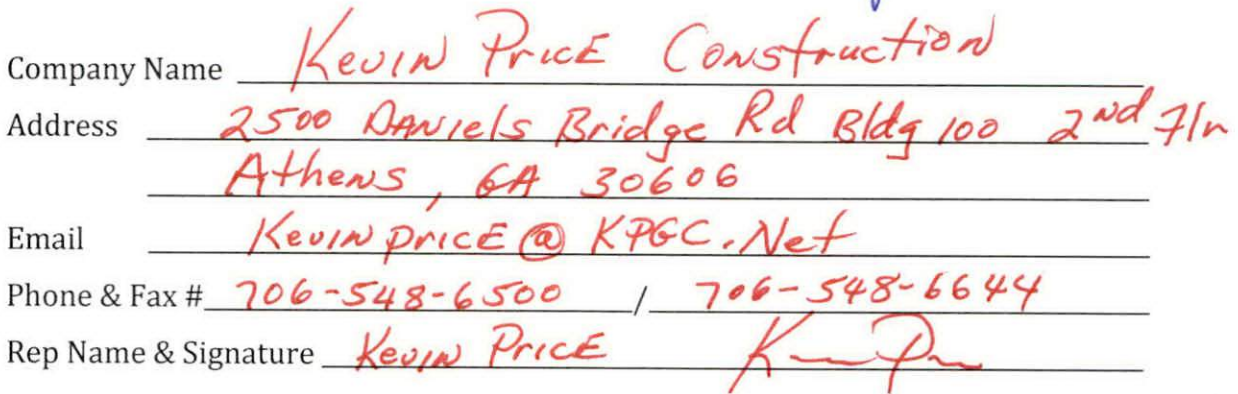 Company Name Kevin Price Construction
Address 2500 Daniels Bridge Rd Bldg 100 2nd Flr
Athens, GA 30606
Email KevinpricE@KPGC.Net
Phone & Fax # 706-548-6500 / 706-548-6644
Rep Name & Signature Kevin Price